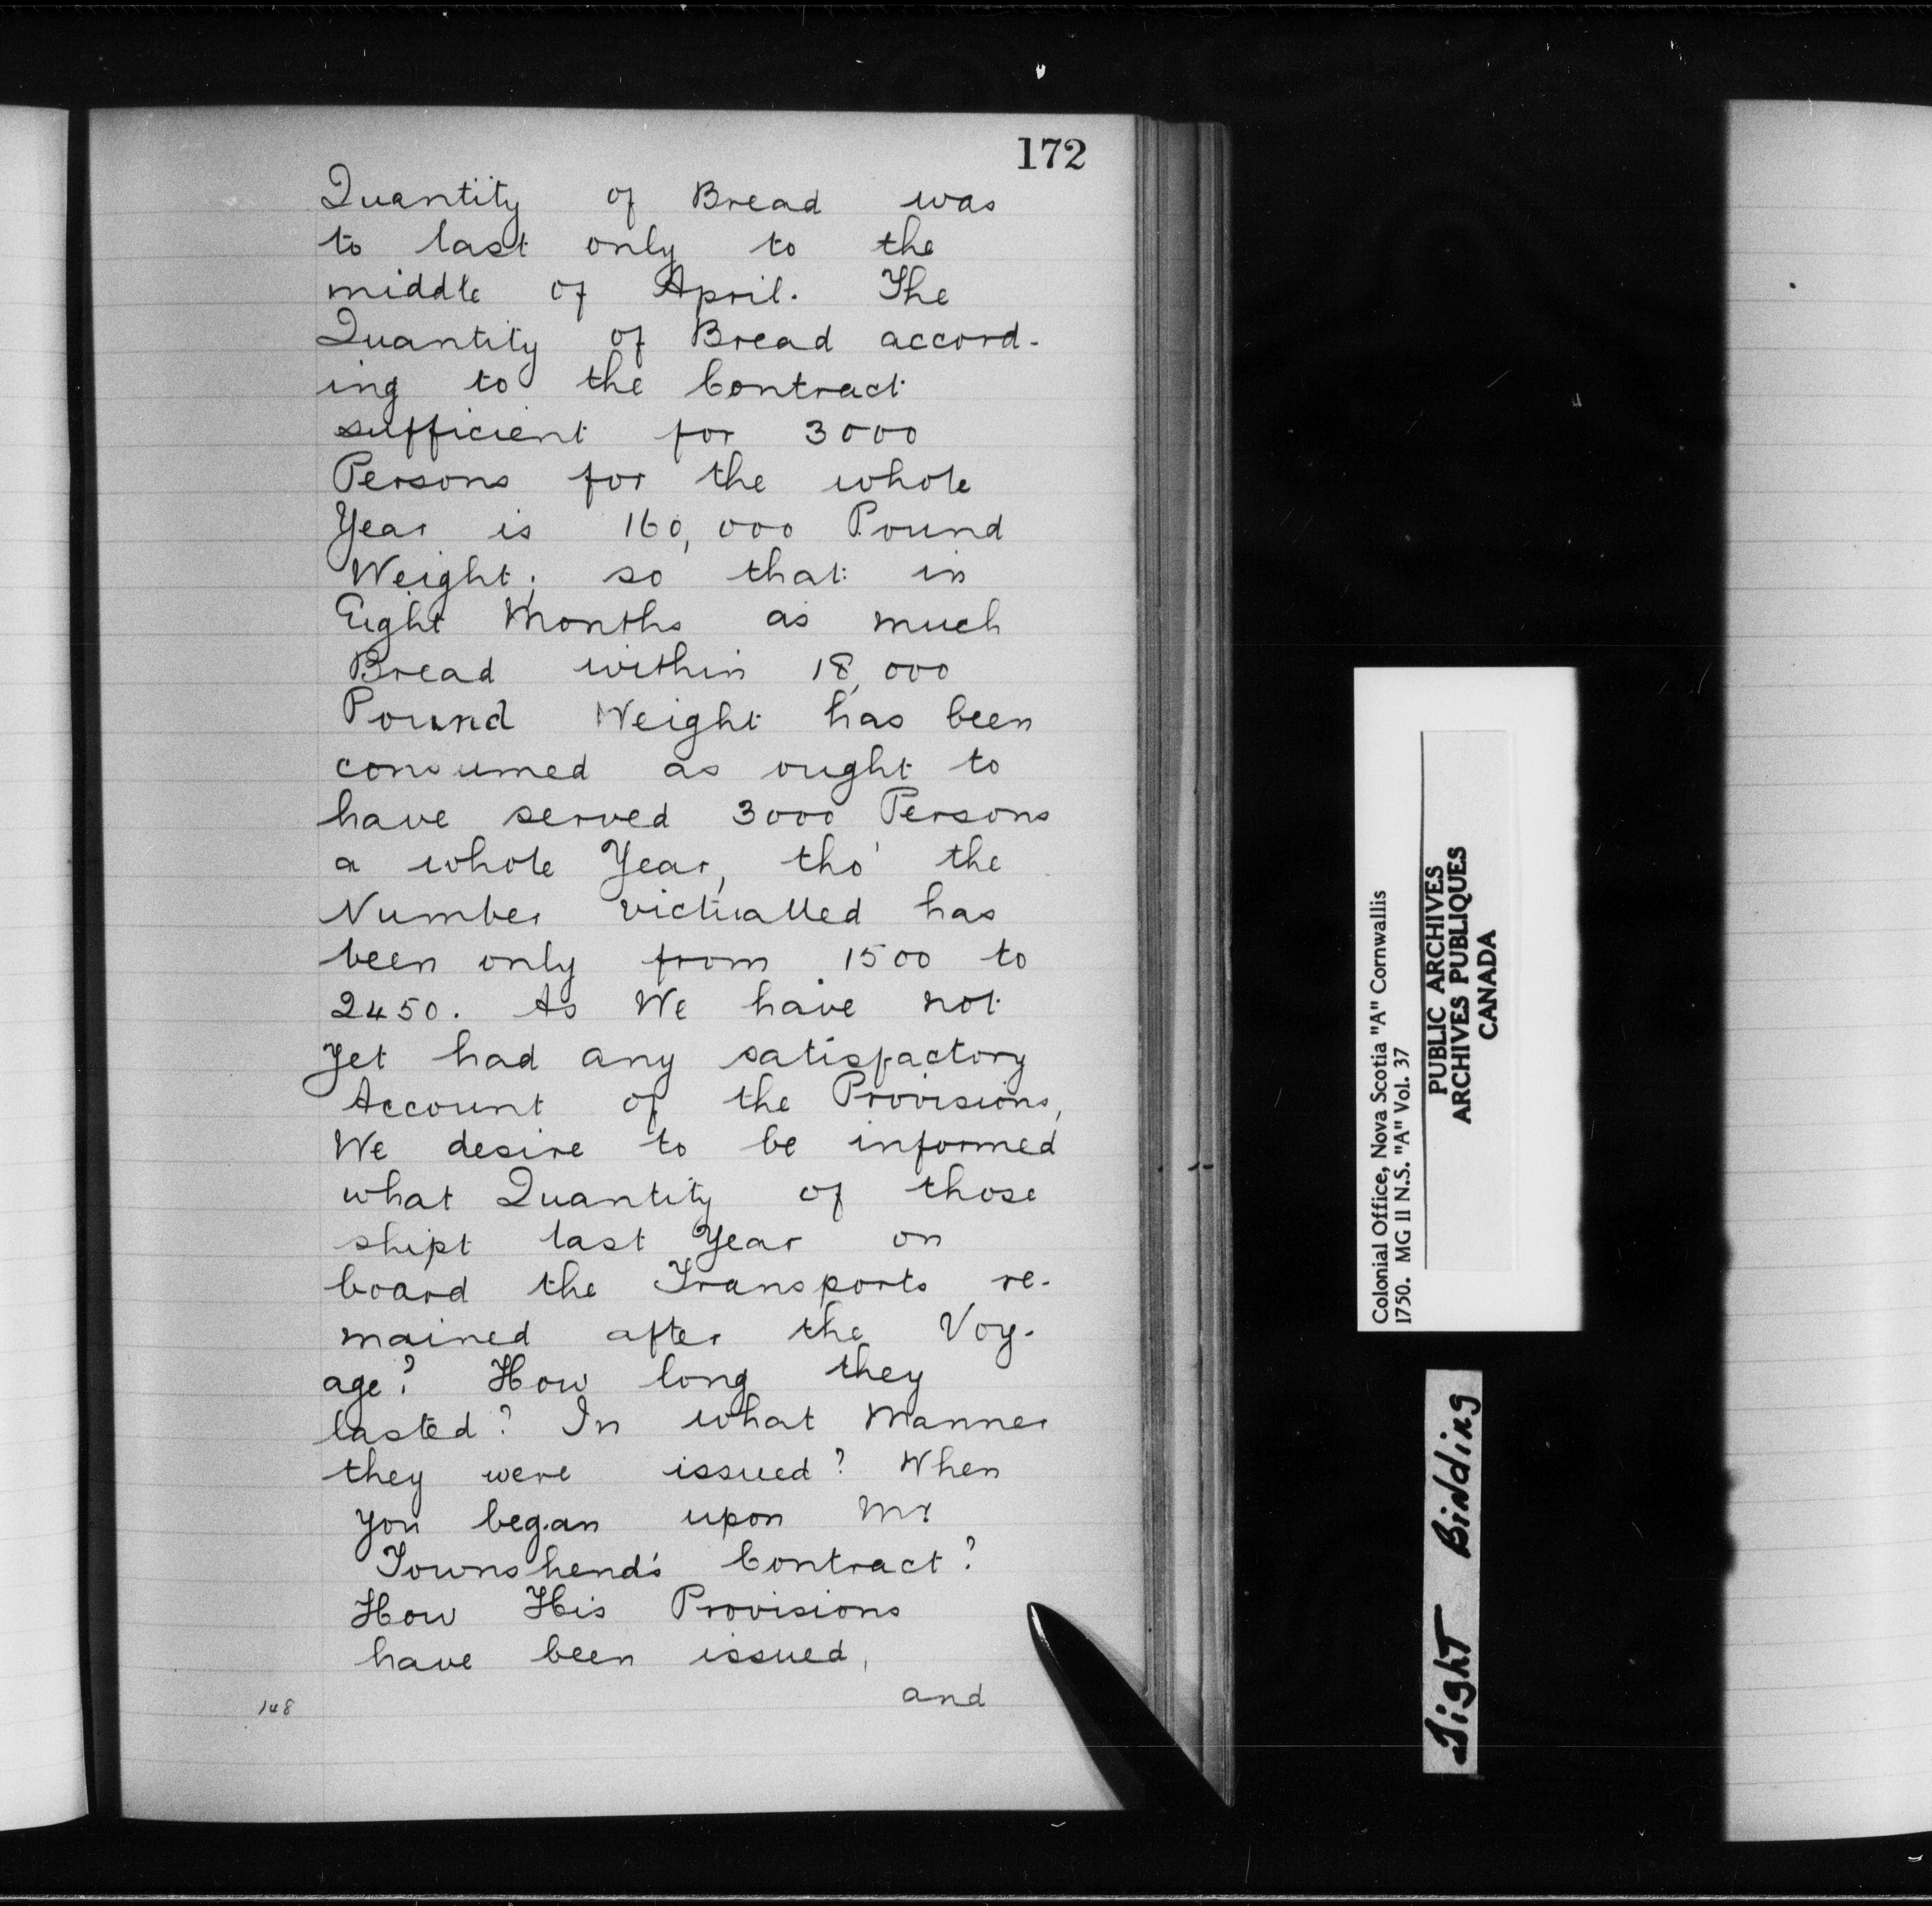 172
Quantity of Bread was
to last only to the
middle of April. The
Quantity of Bread accord-
ing to the Contract
sufficient for 3000
Persons for the whole
Year is 160,000 Pound
Weight; so that in
Eight Months as much
Bread within 18,000
Pound Weight has been
consumed as ought to
have served 3000 Persons
a whole Year, tho' the
Number victualled has
been only from 1500 to
2450. As We have not
yet had any satisfactory
Account of the Provisions,
We desire to be informed
what Quantity of those
shipt last Year on
board the Transports re-
mained after the Voy-
age? How long they
lasted? In what Manner
they were issued? When
you began upon Mr
Townshend's Contract?
How His Provisions
have been issued,
and
148
Colonial Office, Nova Scotia "A" Cornwallis
1750. MG II N.S. "A" Vol. 37
PUBLIC ARCHIVES
ARCHIVES PUBLIQUES
CANADA
Tight Binding